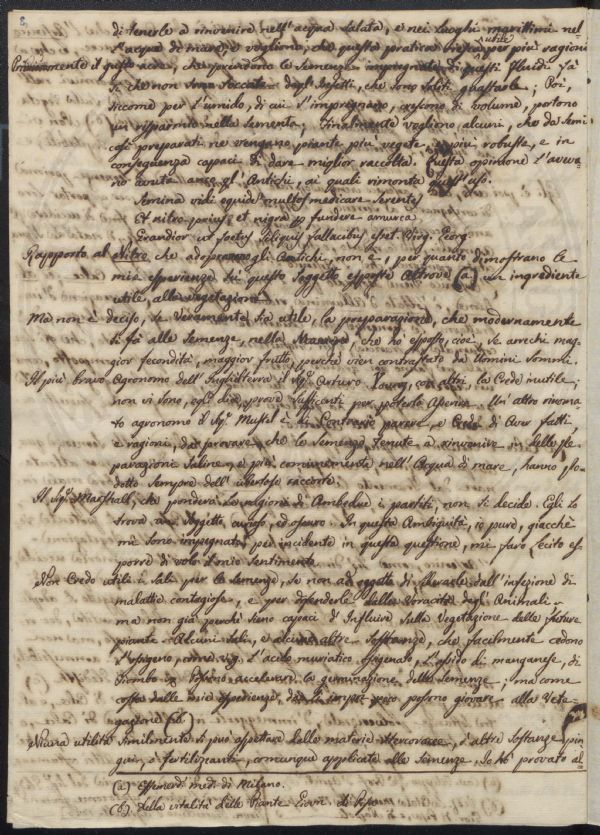 8.
di tenerle a rinvenire nell'acqua salata, e nei luoghi marittimi nel-
l'acqua di mare, e vogliono, che questa pratica utile per più ragioni
Primieramente il questo sede, che secondono le Semenze impregnate di questi fluidi fa
si che non sono toccate dagl'Insetti, che sono soliti guastarle; Poi,
siccome per l'umido, di cui s'impregnano, crescono di volume, portono
un risparmio nella sementa; Finalmente vogliono alcuni, che da Semi
così preparati ne vengano piante più vegete e più robuste, e in
conseguenza capaci di dare miglior raccolta. Questa opinione l'aveva-
no avuta anco gl'Antichi, ai quali rimonta quest'uso.
Semina vidi equidem multos medicare serentes
Et nitro prius, et nigra perfundere amurca
Grandior ut foetus siliquis fallacibus esset. Virg. Georg.
Rapporto al Nitro che adopravano gli Antichi, non è, per quanto dimostrano le
mie esperienze su questo soggetto esposte altrove (a) un ingrediente
utile alla vegetazione.
Ma non è deciso, se veramente sia utile, la preparazione, che modernamente
si fà alle Semenze, nella maniera, che ho esposto, cioè, se arrechi mag-
gior fecondità, maggior frutto, perchè vien contrastato da Uomini sommi.
Il più bravo Agronomo dell'Inghilterra il Sigr. Arturo Young, con altri, la Crede inutile;
non vi sono, egli dice, prove sufficenti per poterlo asserire. Un'altro rinoma-
to agronomo il Sigr. è di Contrario parere, e Crede di aver fatti,
e ragioni, da provare, che le Semenze, tenute a rinvenire in delle pre-
parazioni Saline, e più comunemente nell'Acqua di mare, hanno pro-
dotto sempre dell'ubertose raccolte.
Il Sigr. Marshall, che pondera le ragioni di Ambedue i partiti, non si decide. Egli lo
trova un Soggetto curioso, ed oscuro. In questa Ambiguità, io pure, giacchè
mi sono impegnato per incidente in questa questione, mi farò lecito es-
porre di volo il mio Sentimento.
Non Credo utili i Sali per le Semenze, se non ad oggetto di liberarle dall'infezione di
malattie contagiose, e per difenderle dalla voracità degl'Animali
ma non già perchè sieno capaci d'Influire sulla Vegetazione delle future
piante. Alcuni Sali, e alcune altre Sostanze, che facilmente cedono
l'ossigeno, come v.g. l'acido muriatico ossigenato, l'ossido di manganese, di
Piombo possono accelerare la germinazione delle Semenze; ma come
costa dalle mie esperienze, poco possono giovare alla Vege-
tazione (b)
Niuna utilità similmente si può aspettare dalle materie stercoracee, e altre sostanze pin-
gui, e fertilizzanti, comunque applicate alle Semenze. Io ho provato al
(a) Effemeridi medi. di Milano.
(b) Della vitalità delle Piante di Pisa